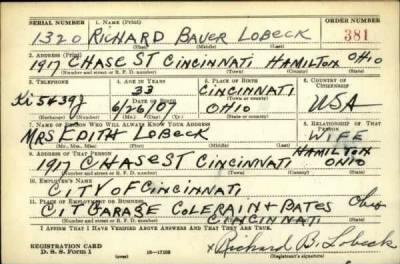 SERIAL NUMBER 1. NAME (Print) ORDER NUMBER
1320 RICHARD BAUER LOBECK 381
(First) (Middle) (Last)
2. ADDRESS (Print)
1917 CHASE ST CINCINNATI HAMILTON OHIO
(Number and street or R. F. D. number) (Town) (County) (State)
3. TELEPHONE 4. AGE IN YEARS 5. PLACE OF BIRTH 6. COUNTRY OF CITIZENSHIP
33 CINCINNATI
Ki 5639J DATE OF BIRTH (Town or county) USA
6/26/07 OHIO
(Exchange) (Number) (Mo.) (Day) (Yr.) (State or country)
7. NAME OF PERSON WHO WILL ALWAYS KNOW YOUR ADDRESS 8. RELATIONSHIP OF THAT PERSON
MRS EDITH LOBECK WIFE
(Mr., Mrs., Miss) (First) (Middle) (Last)
9. ADDRESS OF THAT PERSON HAMILTON
1917 CHASE ST CINCINNATI OHIO
(Number and street or R. F. D. number) (Town) (County) (State)
10. EMPLOYER'S NAME
CITY OF CINCINNATI
11. PLACE OF EMPLOYMENT OR BUSINESS
GARAGE COLERAIN & BATES Ohio
CINCINNATI
(Number and street or R. F. D. number) (Town) (County) (State)
I AFFIRM THAT I HAVE VERIFIED ABOVE ANSWERS AND THAT THEY ARE TRUE.
REGISTRATION CARD x Richard B. Lobeck
D. S. S. Form 1 (Registrant's signature)